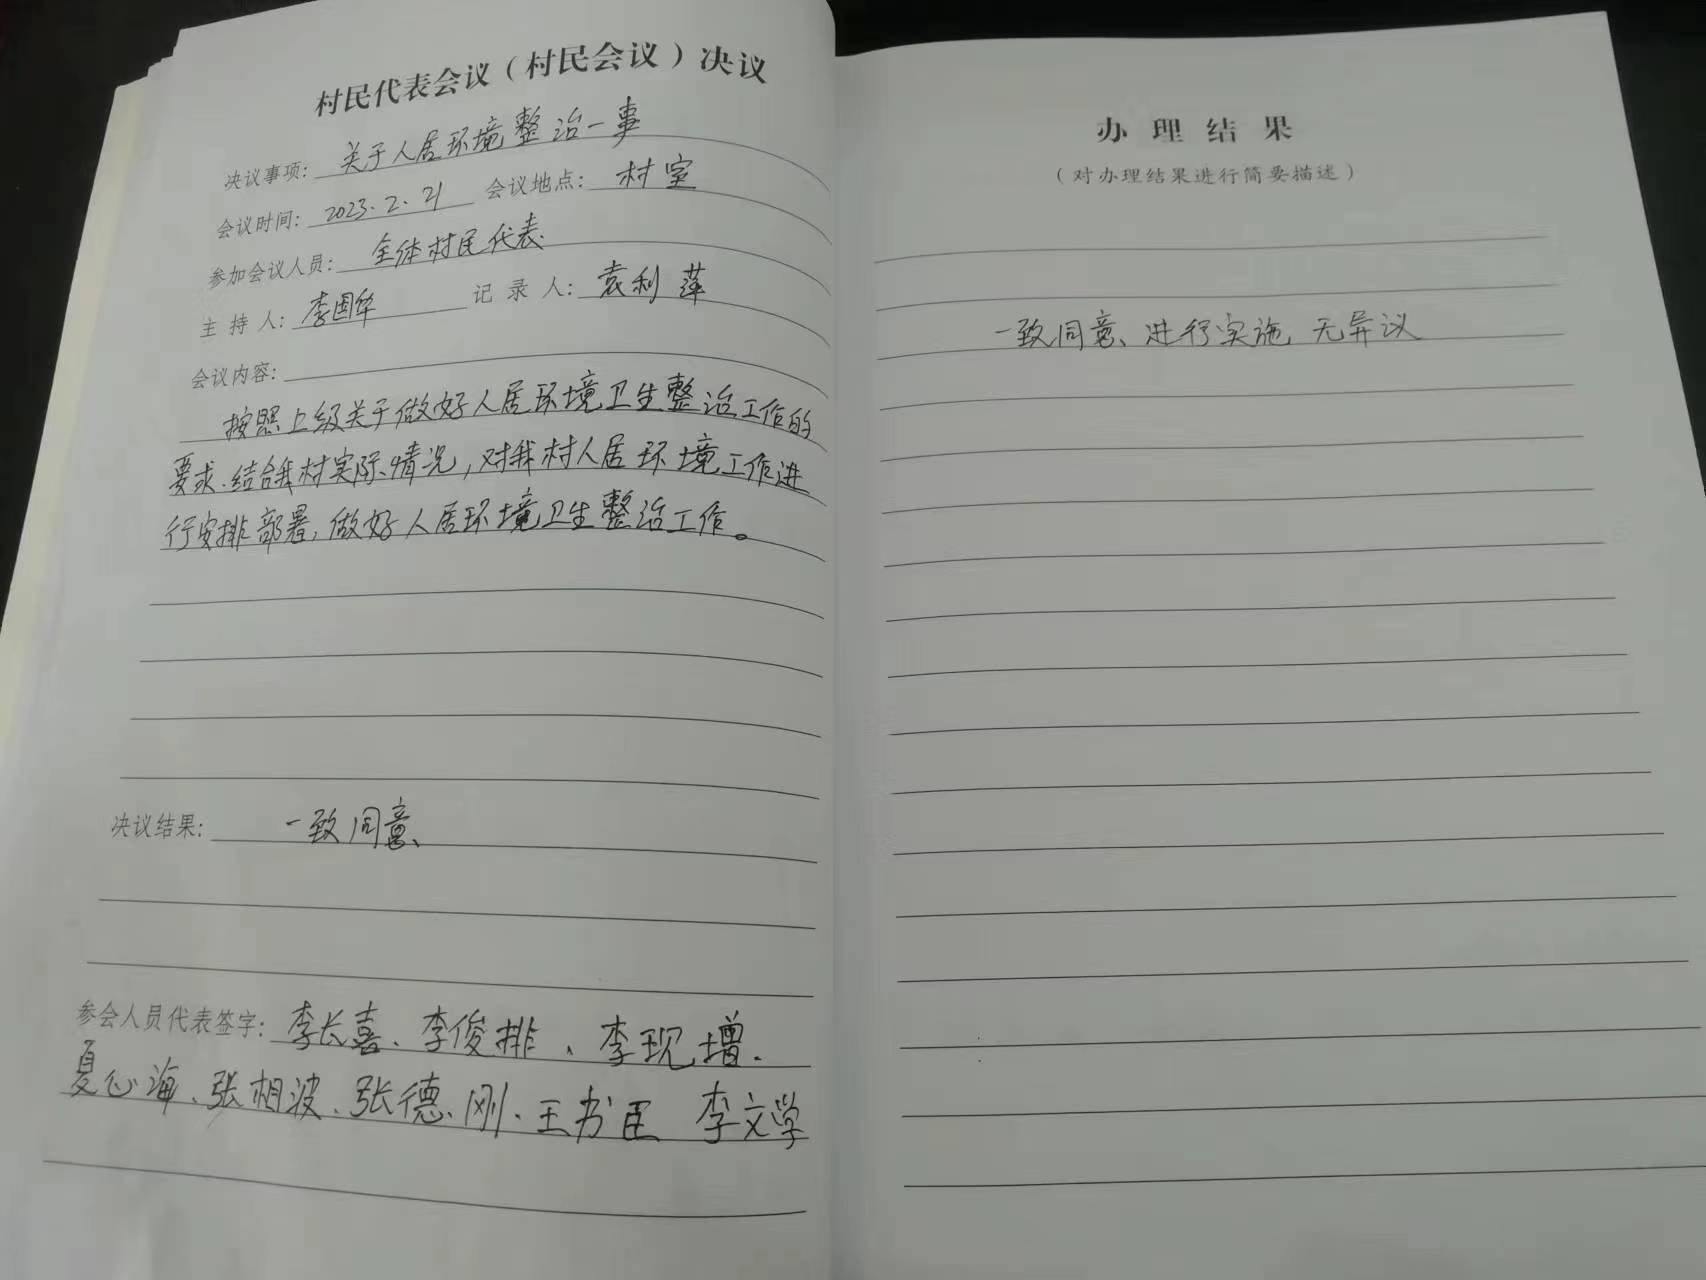 村民代表会议（村民会议）决议
决议事项：关于人居环境整治一事
会议时间：2023.2.21 会议地点：村室
参加会议人员：全体村民代表
主持人：李国华 记录人：袁利萍
会议内容：
按照上级关于做好人居环境卫生整治工作的
要求、结合我村实际、情况，对我村人居环境工作进
行安排部署，做好人居环境卫生整治工作。
决议结果：一致同意、
参会人员代表签字：李长喜、李俊排、李现增、
夏心海、张相波、张德刚、王书臣 李文学
办理结果
（对办理结果进行简要描述）
一致同意、进行实施 无异议